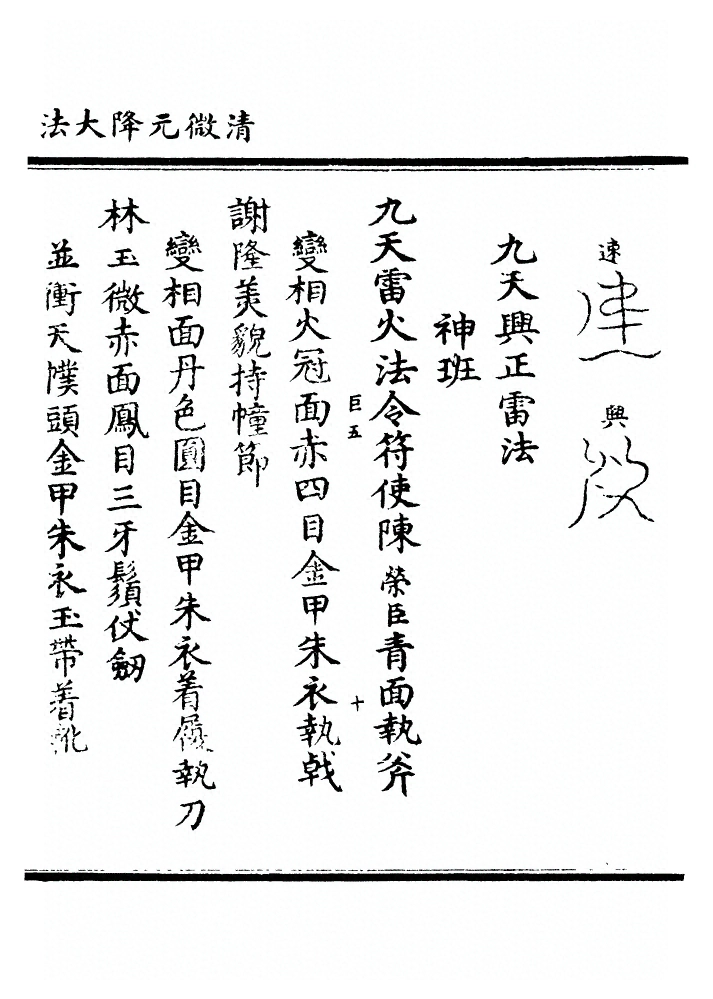 清微元降大法
速
興
九天興正雷法
神班
九天雷火法令符使陳榮臣青面執斧
巨五
十
變相火冠面赤四目金甲朱衣執戟
謝隆美貌持幢節
變相面丹色圓目金甲朱衣着履執刀
林玉微赤面鳳目三牙鬚伏劒
並衝天幞頭金甲朱衣玉帶着靴